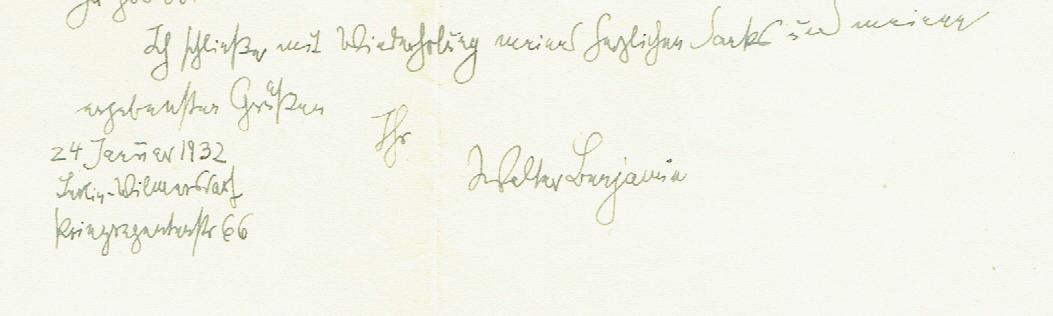 Ich schließe mit Wiederholung meines herzlichen Danks und meinen
ergebensten Grüßen
Ihr
Walter Benjamin
24 Januar 1932
Berlin-Wilmersdorf
Prinzregentenstr 66